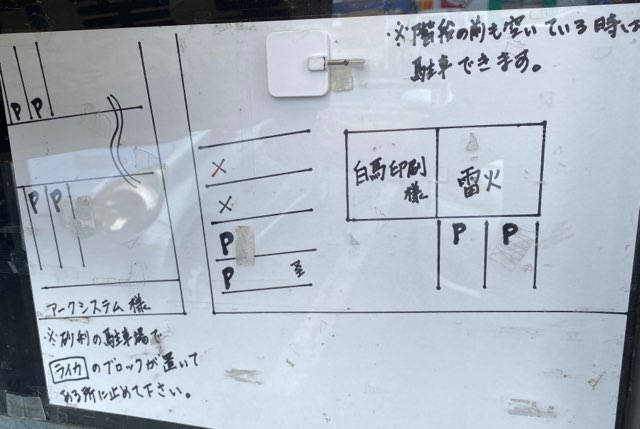 ※階段の前も空いている時は
駐車できます。
P P
P P
×
×
P
P
白馬印刷
様
雷火
P P
アークシステム様
※砂利の駐車場で
ライカのブロックが置いて
ある所に止めて下さい。